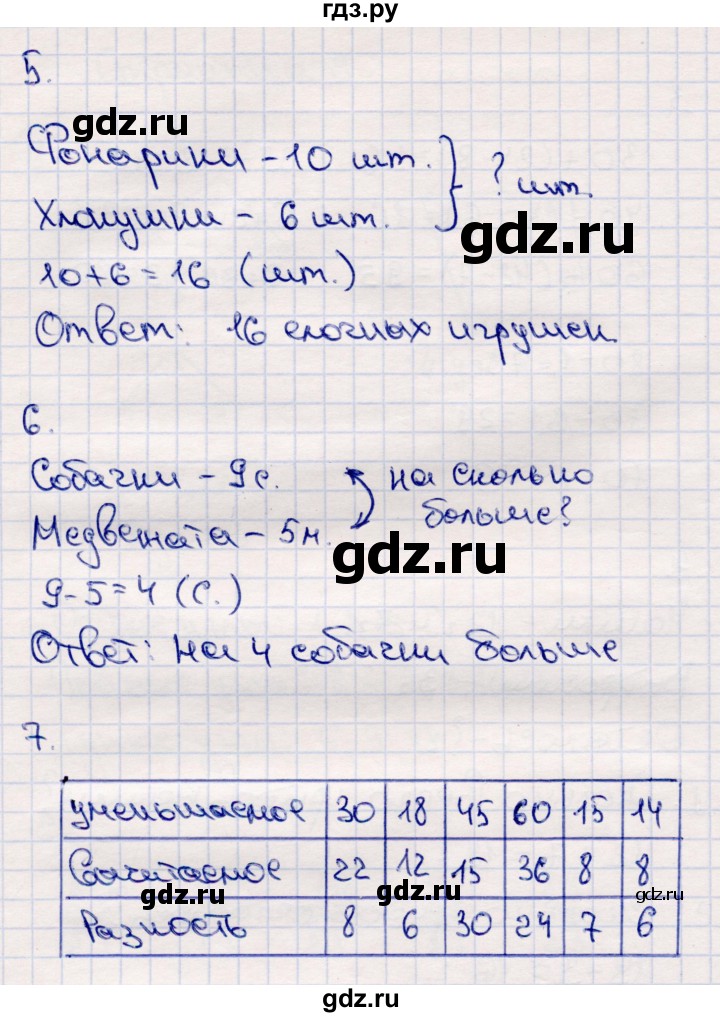 гдз.ру
5.
gdz.ru
Фонарики - 10 шт.
? шт.
Хлопушки - 6 шт.
gdz.ru
10+6=16 (шт.)
Ответ: 16 елочных игрушек.
6.
Собачки - 9с.
на сколько
больше?
Медвежата - 5м.
gdz.ru
9-5=4 (с.)
Ответ: на 4 собачки больше
7.
уменьшаемое 30 18 45 60 15 14
Вычитаемое 22 12 15 36 8 8
gdz.ru gdz.ru gdz.ru
Разность 8 6 30 24 7 6
gdz.ru